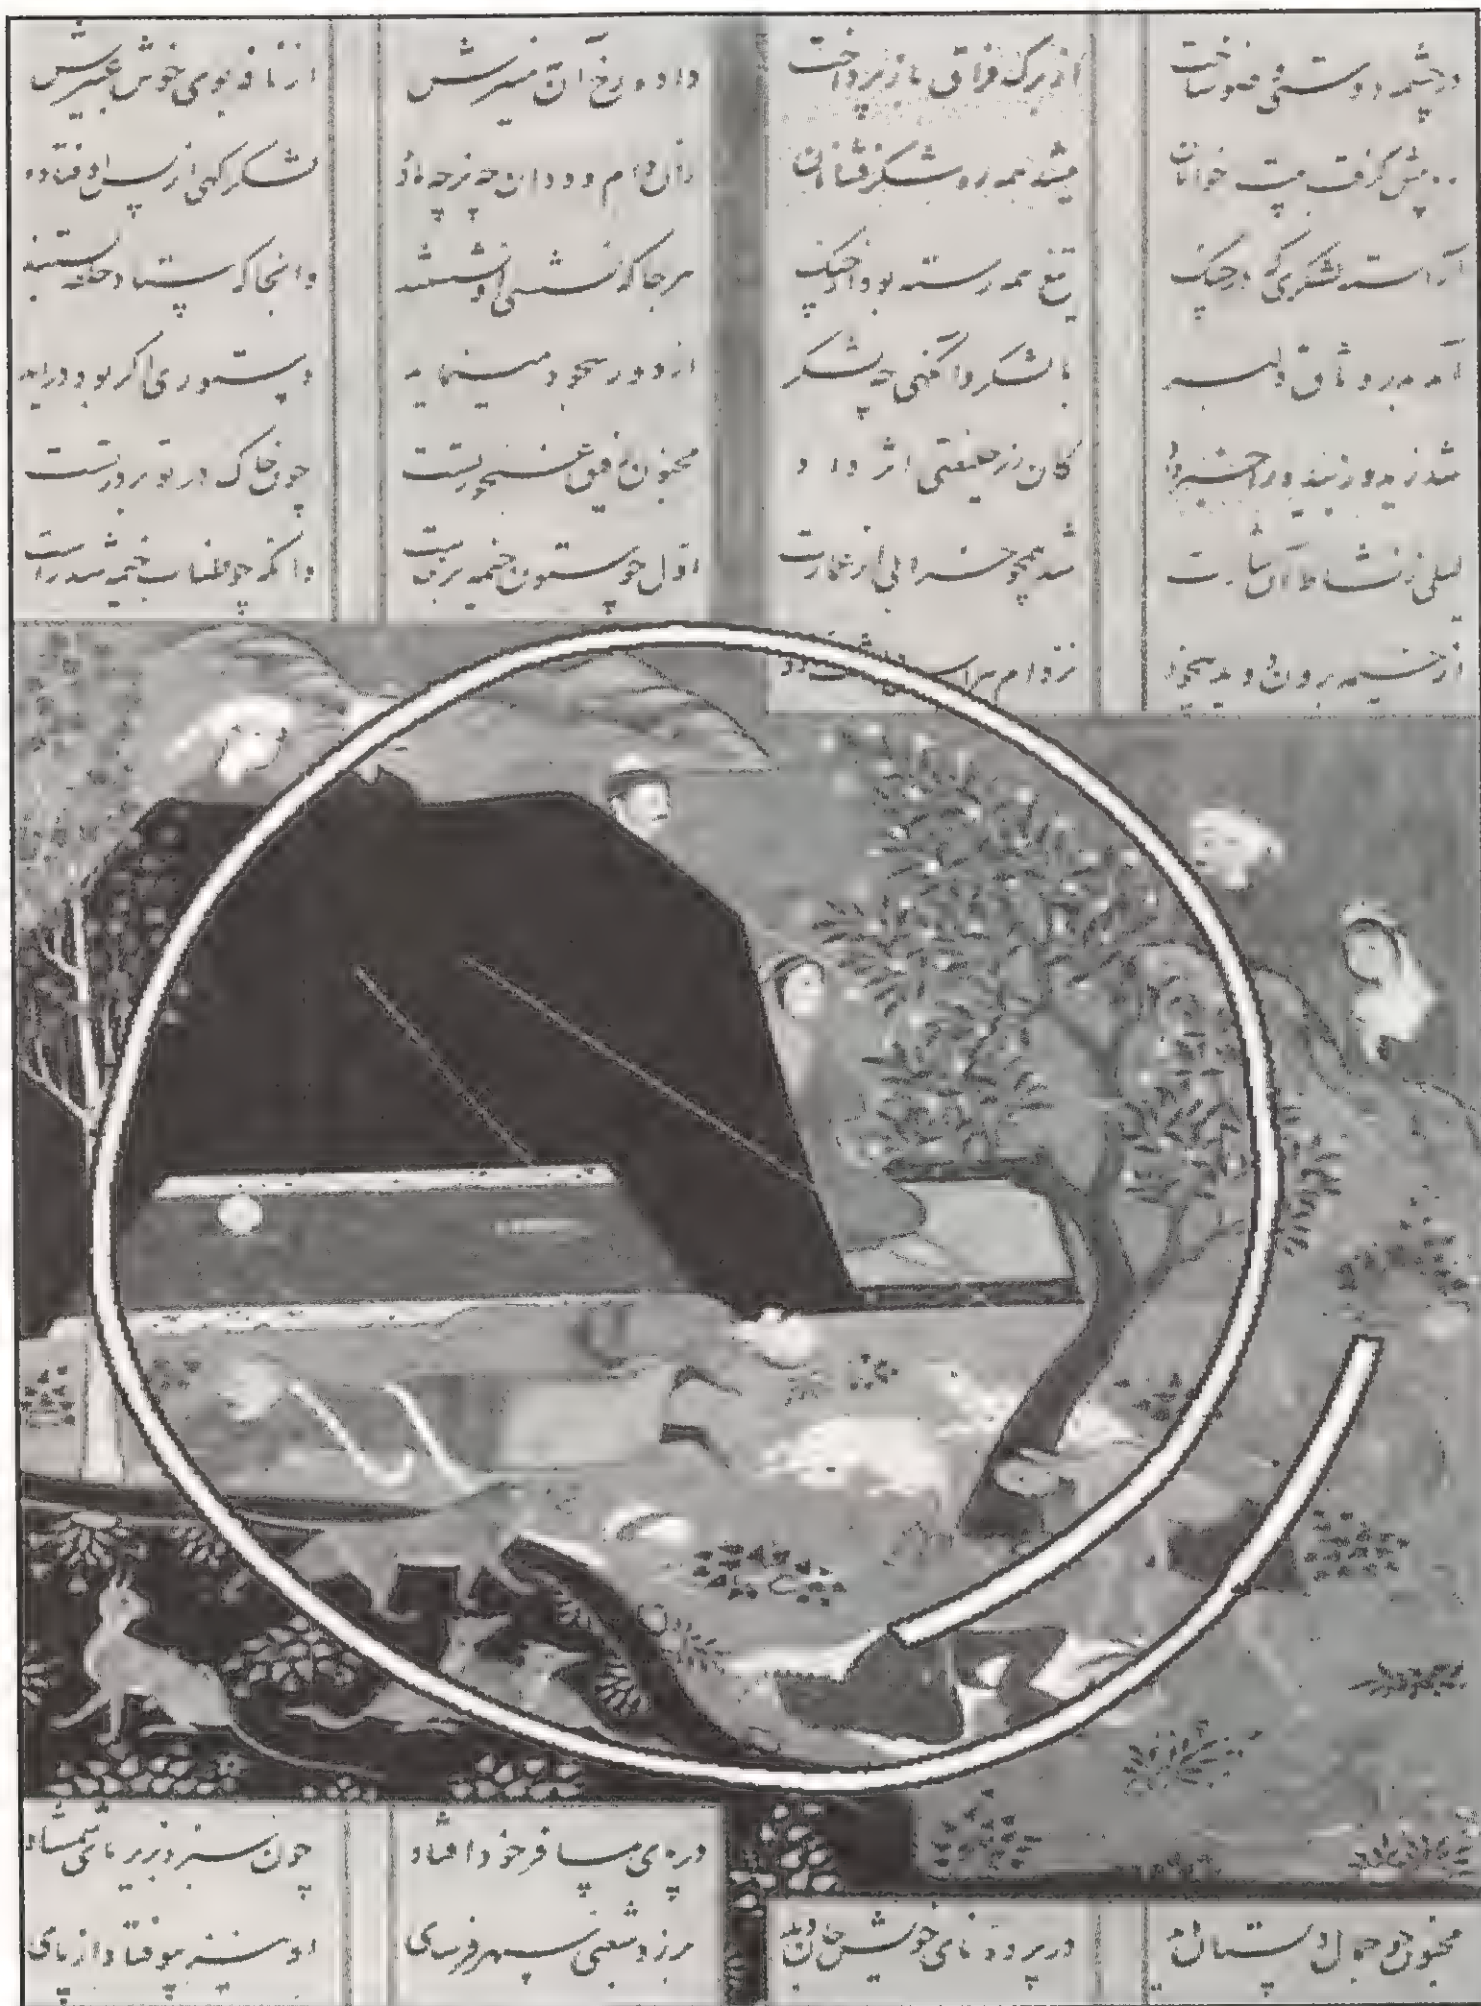 در چشمه دوستی ساخت از برگ فراق باز پرداخت داد از نافه بوی خوش عبیرش
ره پیش گرفت بیت خوانان میشد همه ره شکر فشانان زان دام و ددان چه نر چه ماده لشکر گهی از پس اوفتاده
آراسته لشکری که در جنگ تیغ همه رسته بود از چنگ هر جا که نشستی او نشستند وانجا که ستاد حلقه بستند
آمد بدر وثاق دلبر با لشکر وانگهی چه لشکر از دور سجود مینماید دستوری اگر بود در آید
شد زید خبر داد کان حقیقتی اثر داد مجنون رفیق غمخورتست چون خاک در تو بر درتست
لیلی ز نشاط آن بشارت شد همچو خرابی از عمارت اول چو ستون خیمه برخاست وانگه چو طناب خیمه شد راست
از خیمه برون دوید بیخود نز دام دد
در پای مسافر خود افتاد چون سبزه بزیر پای شمشاد
مجنون چو جمال دلستان دید در پرده نای خویش جان دید برزد شغبی سپهر فرسای او نیز چو فتاد از پای